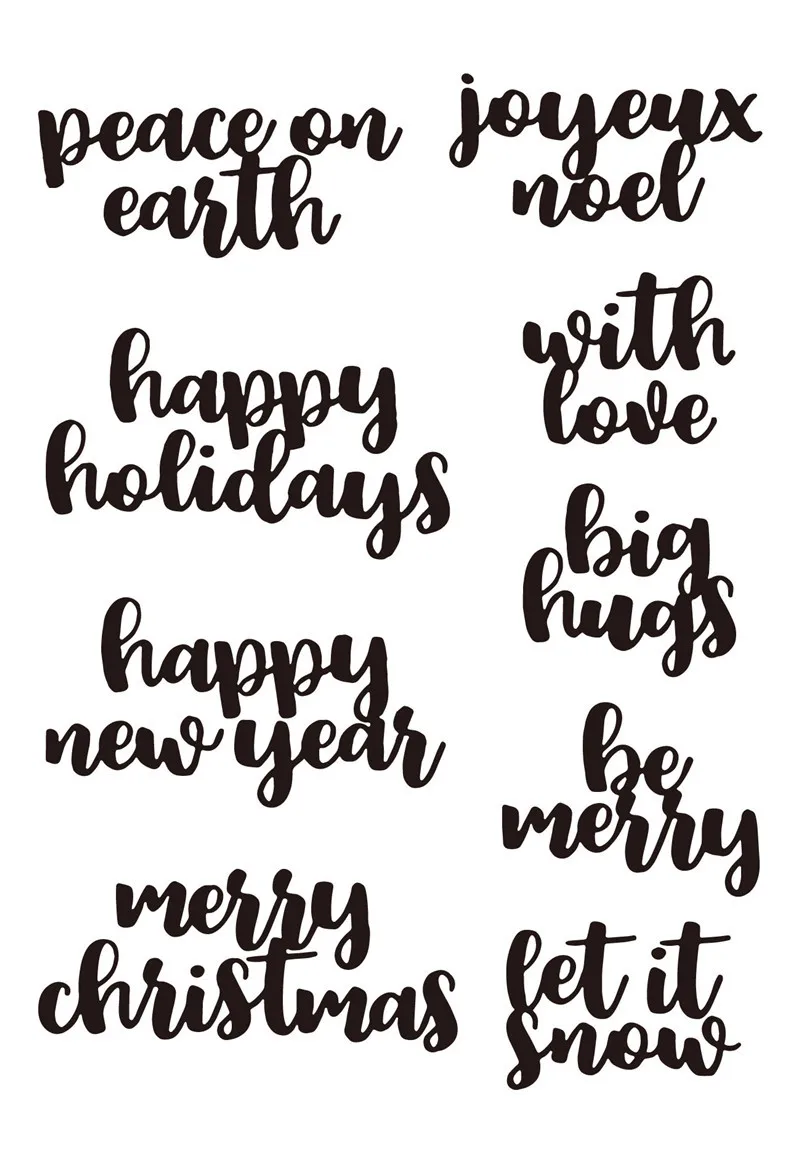 peace on
earth
joyeux
noel
happy
holidays
with
love
big
hugs
happy
new year
be
merry
merry
christmas
let it
snow